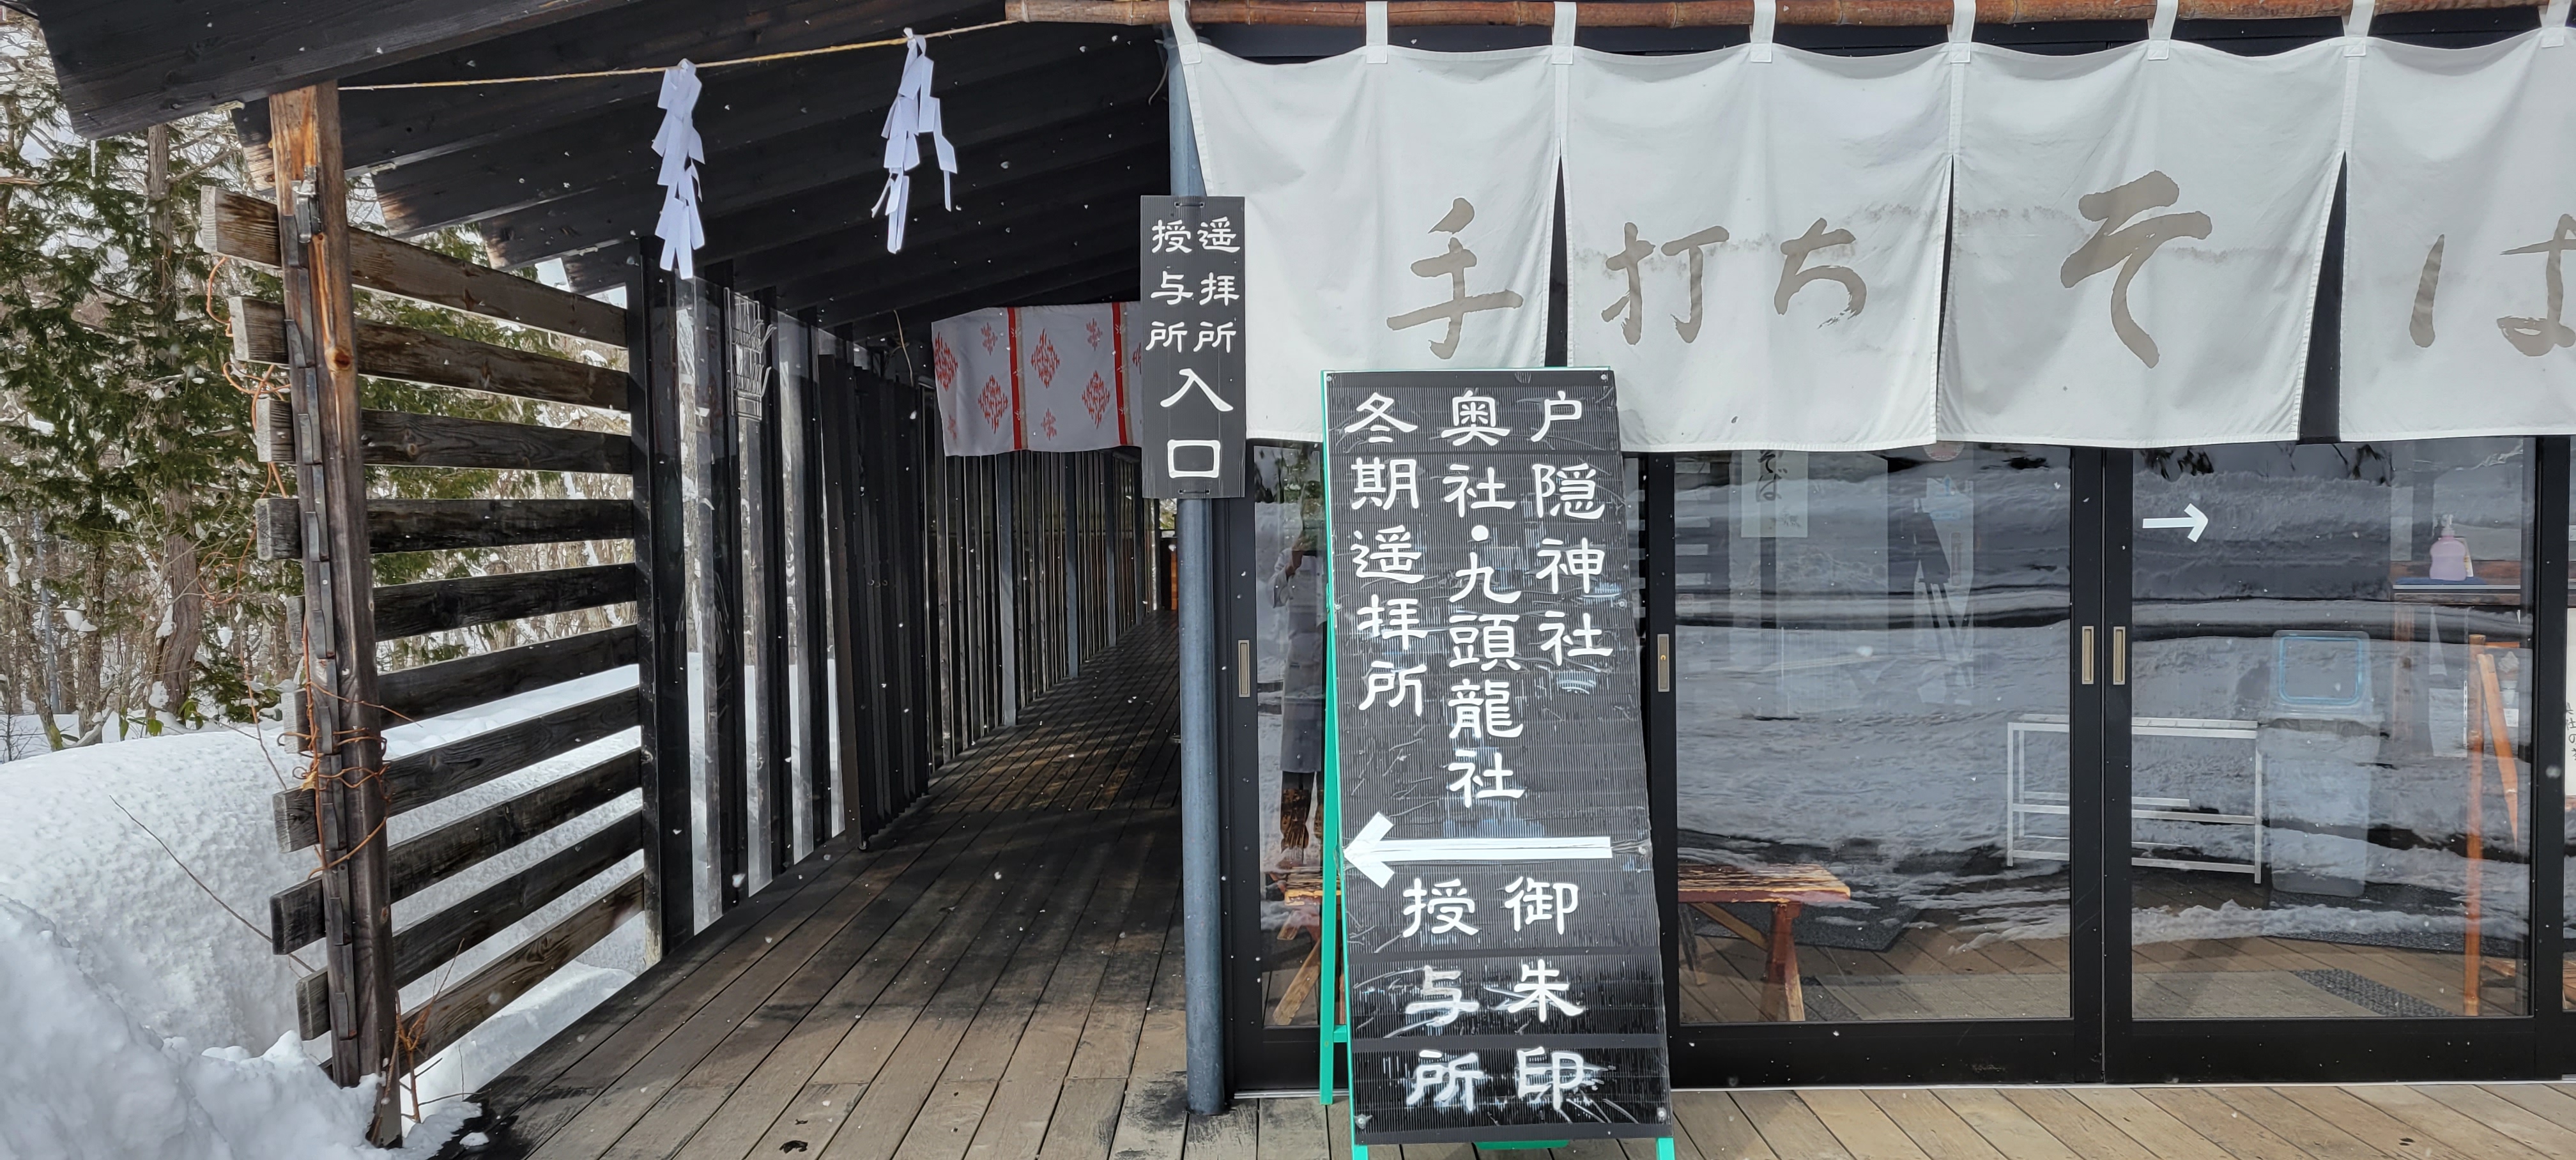 手打ちそば
遥拝所
授与所
入口
戸隠神社
奥社・九頭龍社
冬期遥拝所
御朱印
授与所
そば